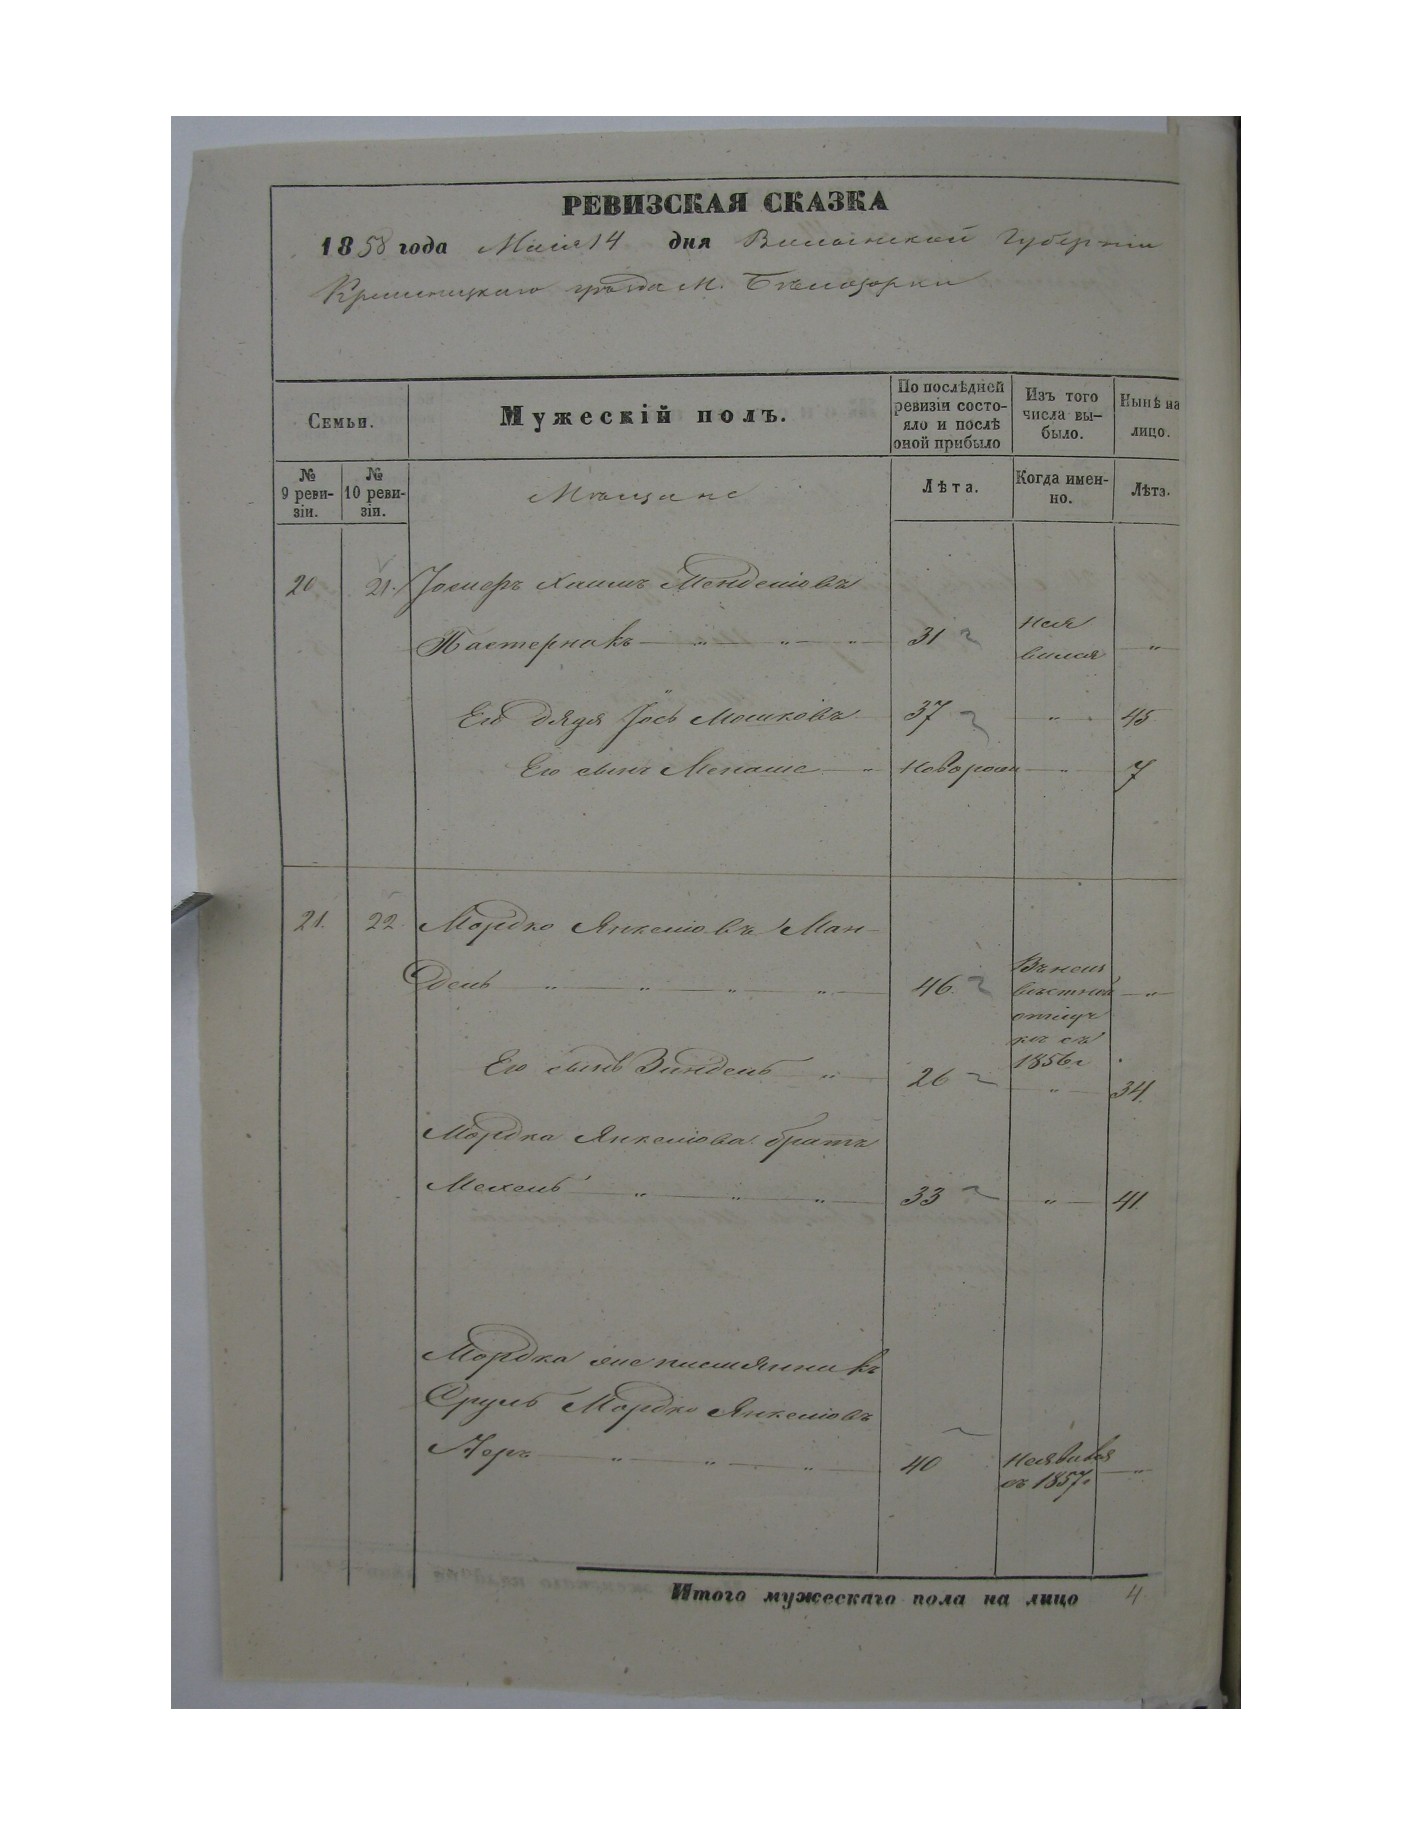 РЕВИЗСКАЯ СКАЗКА
1858 года Маія 14 дня Волынской Губерніи
Кременецкаго уѣзда М. Бѣлозорки
Семьи.
Мужескій полъ.
По послѣдней ревизіи состо-
яло и послѣ
оной прибыло
Изъ того
числа вы-
было.
Нынѣ на
лицо.
№
9 реви-
зіи.
№
10 реви-
зіи.
Мѣщане
Лѣта.
Когда имен-
но.
Лѣта.
20 21. Хаимъ Менделіовъ
Пастернакъ — „ — „ — „ 31 нея
вился „
Его дядя Іось Мошковъ 37 „ 45
Его сынъ Менаше — „ новорожд „ 7
21. 22 Мордко Янкеліовъ Ман-
дель „ „ „ „ 46 Въ неиз
вѣстной „
отлуч
кѣ съ
1856 г
Его сынъ Зиндель „ 26 „ 34.
Мордка Янкеліова братъ
Мехель „ „ „ 33 „ 41.
Мордка племянникъ
Сруль Мордко Янкеліовъ
„ „ „ 40 неявился
съ 1857 г „
Итого мужескаго пола на лицо 4